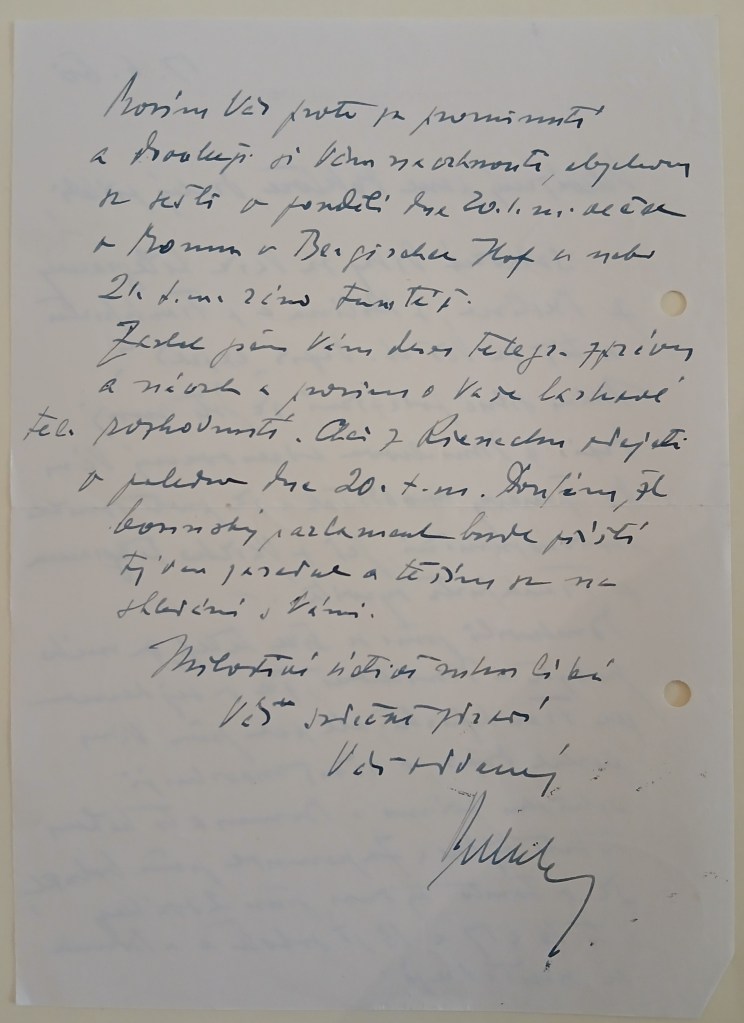 Prosím Vás proto za prominutí
a dovoluji si Vám navrhnouti, abychom
se sešli v pondělí dne 20. t. m. večer
v Bonnu v Bergischer Hof a nebo
21. t. m. ráno tamtéž.
Zaslal jsem Vám dnes telegr. zprávu
a návrh a prosím o Vaše laskavé
tel. rozhodnutí. Chci z odejeti
v poledne dne 20. t. m. Doufám, že
bonnský parlament bude příští
týden zasedat a těším se na
shledání s Vámi.
Milostivé uctivě ruku líbá
Váš srdečně zdraví
Váš oddaný